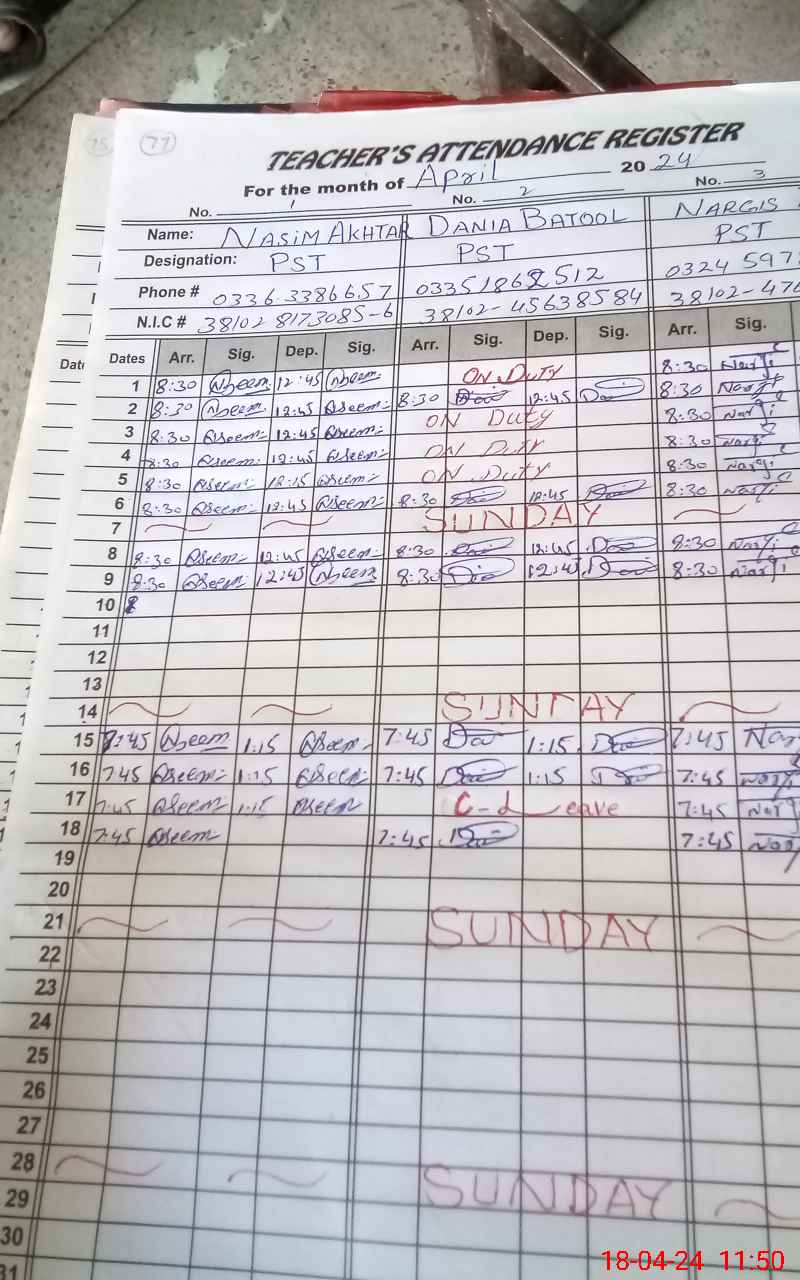 77
TEACHER'S ATTENDANCE REGISTER
For the month of April 2024
No. 1 No. 2 No. 3
Name: NASIM AKHTAR DANIA BATOOL NARGIS
Designation: PST PST PST
Phone # 0336 3386657 03351862512 0324 597
N.I.C # 38102 8173085-6 38102-45638584 38102-47
Dates Arr. Sig. Dep. Sig. Arr. Sig. Dep. Sig. Arr. Sig.
1 8:30 Nseem 12:45 Nseem ON DUTY 8:30 Nargis
2 8:30 Nseem 12:45 Nseem 8:30 12:45 8:30 Nargis
3 8:30 Nseem 12:45 Nseem ON Duty 8:30 Nargis
4 8:30 Nseem 12:45 Nseem ON Duty 8:30 Nargis
5 8:30 Nseem 12:15 Nseem ON Duty 8:30 Nargis
6 8:30 Nseem 12:45 Nseem 8:30 12:45 8:30 Nargis
7 SUNDAY
8 8:30 Nseem 12:45 Nseem 8:30 12:45 8:30 Nargis
9 8:30 Nseem 12:45 Nseem 8:30 12:45 8:30 Nargis
10
11
12
13
14 SUNDAY
15 7:45 Nseem 1:15 Nseem 7:45 1:15 7:45 Nar
16 7:45 Nseem 1:15 Nseem 7:45 1:15 7:45 Nargi
17 7:45 Nseem 1:15 Nseem C-Leave 7:45 Narg
18 7:45 Nseem 7:45 7:45 Narg
19
20
21 SUNDAY
22
23
24
25
26
27
28 SUNDAY
29
30
31
18-04-24 11:50